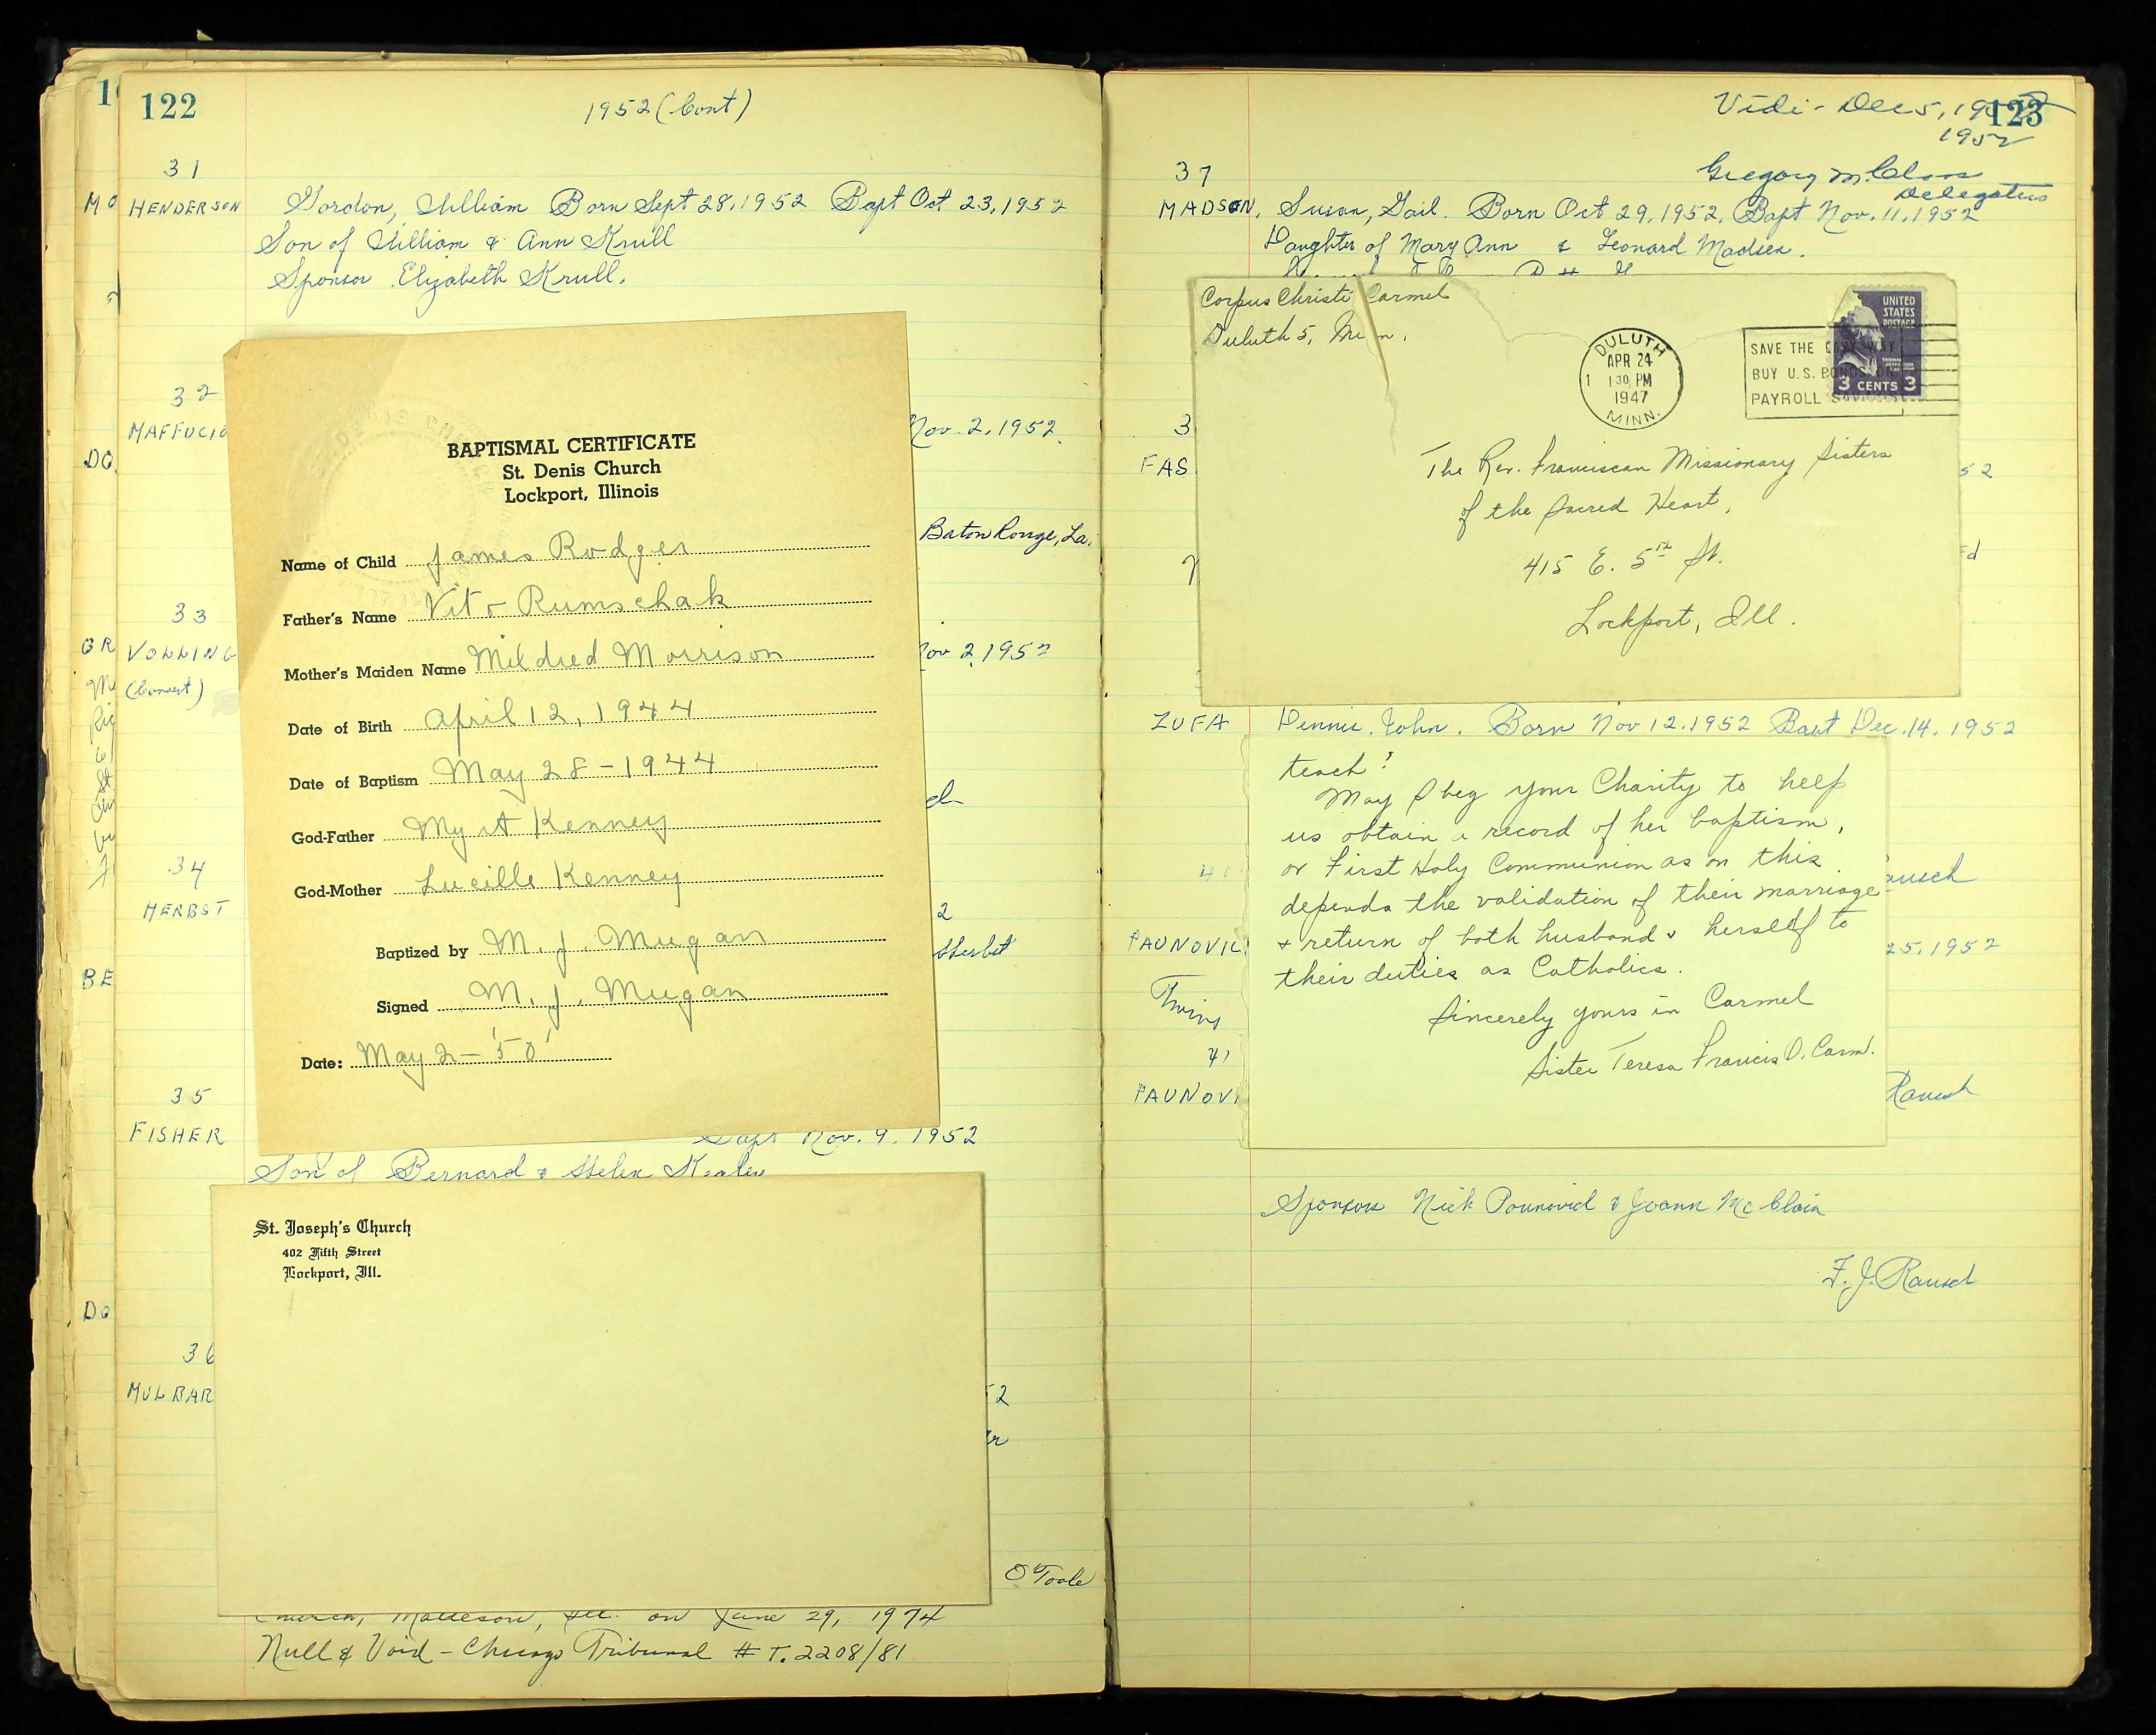 122
1952 (Cont)
31
HENDERSON Gordon, William Born Sept 28, 1952 Bapt Oct 23, 1952
Son of William & Ann Krull
Sponsor Elizabeth Krull.
32
MAFFUCIO
Nov. 2, 1952
Baton Rouge, La.
33
VOLLING
(Convert)
Nov 2, 1952
34
HERBST
2
Herbst
35
FISHER
Bapt Nov. 9, 1952
Son of Bernard & Helen
36
MULBAR
52
O'Toole
Church, Matteson, Ill. on June 29, 1974
Null & Void - Chicago Tribunal # T. 2208/81
MO
DO
GR
BE
DO
BAPTISMAL CERTIFICATE
St. Denis Church
Lockport, Illinois
Name of Child James Rodger
Father's Name Vito Rumschak
Mother's Maiden Name Mildred Morrison
Date of Birth April 12, 1944
Date of Baptism May 28 - 1944
God-Father Myrt Kenney
God-Mother Lucille Kenney
Baptized by M. J. Mugan
Signed M. J. Mugan
Date: May 2 - '50'
St. Joseph's Church
402 Fifth Street
Lockport, Ill.
123
Vidi - Dec 5, 19
1952
Gregory
Delegatus
37
MADSEN, Susan, Gail. Born Oct 29, 1952, Bapt Nov. 11, 1952
Daughter of Mary Ann & Leonard Madsen.
Corpus Christi Carmel
Duluth 5, Minn.
DULUTH
APR 24
1 30 PM
1947
MINN.
SAVE THE EASY WAY
BUY U.S. BONDS ON
PAYROLL SAVINGS
UNITED
STATES
POSTAGE
3 CENTS 3
The Rev. Franciscan Missionary Sisters
of the Sacred Heart,
415 E. 5th St.
Lockport, Ill.
3
FAS
52
ZUFA Dennis, John. Born Nov 12, 1952 Bapt Dec. 14, 1952
teach?
May I beg your Charity to help
us obtain a record of her baptism,
or First Holy Communion as on this
depends the validation of their marriage
& return of both husband & herself to
their duties as Catholics.
Sincerely yours in Carmel
Sister Teresa Francis O. Carm.
40
ausch
PAUNOVIC
25, 1952
Twins
41
PAUNOVI
Rausch
Sponsors Nick Paunovich & Joann McClain
F. J. Rausch